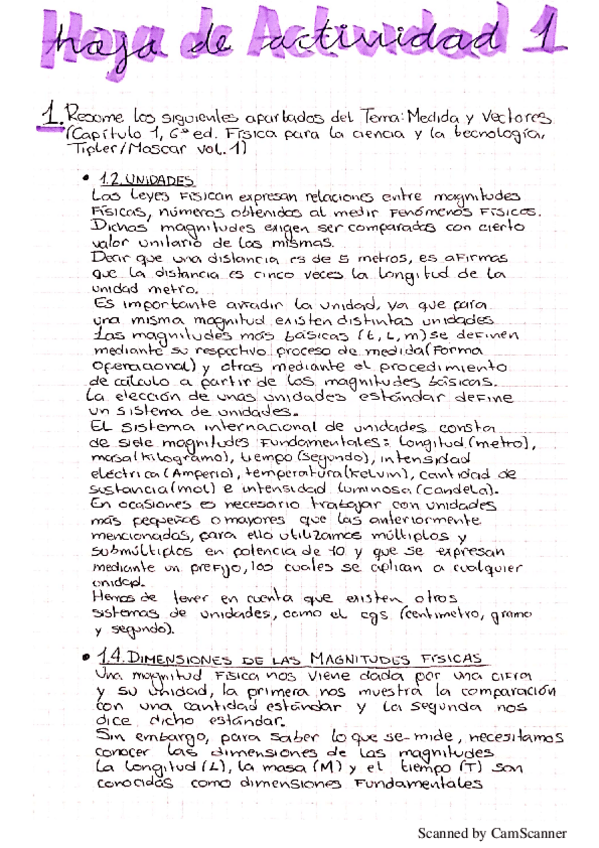 Hoja de actividad 1
1. Resume los siguientes apartados del Tema: Medida y Vectores
(Capítulo 1, 6ª ed. Física para la ciencia y la tecnología,
Tipler/Moscar vol. 1)
• 1.2. UNIDADES
Las Leyes Físican expresan relaciones entre magnitudes
Físicas, números obtenidos al medir fenómenos físicos.
Dichas magnitudes exigen ser comparados con cierto
valor unitario de las mismas.
Decir que una distancia es de 5 metros, es afirmas
que la distancia es cinco veces la longitud de la
unidad metro.
Es importante añadir la unidad, ya que para
una misma magnitud existen distintas unidades
Las magnitudes más básicas (t, L, m) se definen
mediante su respectivo proceso de medida (Forma
operacional) y otras mediante el procedimiento
de cálculo a partir de las magnitudes básicas.
La elección de unas unidades estándar define
un sistema de unidades.
El sistema internacional de unidades consta
de siete magnitudes fundamentales: longitud (metro),
masa (kilogramo), tiempo (segundo), intensidad
eléctrica (Amperio), temperatura (Kelvin), cantidad de
sustancia (mol) e intensidad luminosa (candela).
En ocasiones es necesario trabajar con unidades
más pequeñas o mayores que las anteriormente
mencionadas, para ello utilizamos múltiplos y
submúltiplos en potencia de 10 y que se expresan
mediante un prefijo, los cuales se aplican a cualquier
unidad.
Hemos de tener en cuenta que existen otros
sistemas de unidades, como el cgs (centímetro, gramo
y segundo).
• 1.4. DIMENSIONES DE LAS MAGNITUDES FÍSICAS
Una magnitud física nos viene dada por una cifra
y su unidad, la primera nos muestra la comparación
con una cantidad estándar y la segunda nos
dice dicho estándar.
Sin embargo, para saber lo que se mide, necesitamos
conocer las dimensiones de las magnitudes
La longitud (L), la masa (M) y el tiempo (T) son
conocidas como dimensiones fundamentales
Scanned by CamScanner